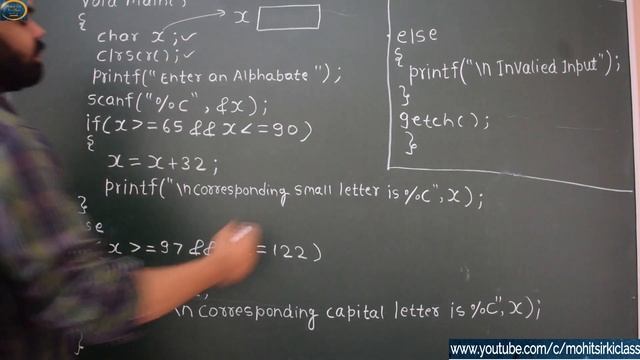 void main()
{
char x;✓
x
clrscr();✓
printf("Enter an Alphabate");
scanf("%c",&x);
if(x>=65&&x<=90)
{
x=x+32;
printf("\ncorresponding small letter is %c",x);
}
se
x>=97&& =122)
;
\n corresponding capital letter is %c",x);
}
else
{
printf("\n Invalied Input");
}
getch();
}
www.youtube.com/c/mohitsirkiclass